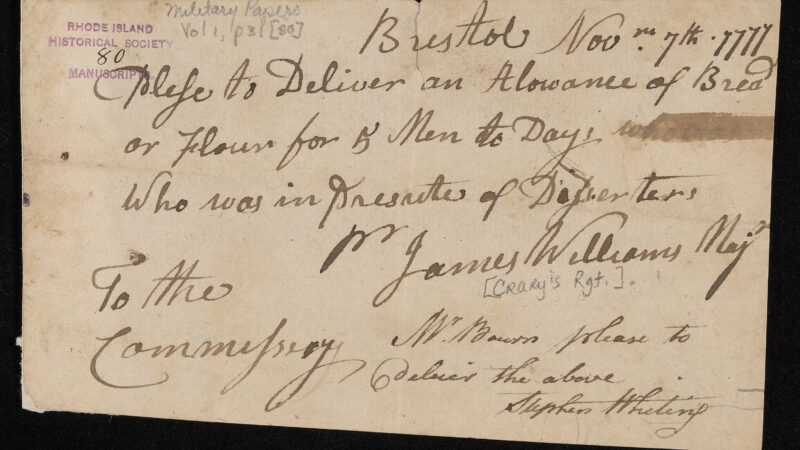 RHODE ISLAND
HISTORICAL SOCIETY
80
MANUSCRIPTS
Military Papers
Vol 1, p31 [80]
Bristol Novm. 7th. 1777
Plese to Deliver an Alowance of Bread
or Flour for 5 Men to Days
Who was in Presuite of Desserters
pr James Williams Majr
[Crary's Rgt.].
To the
Commissery
Mr. Bourn please to
deliver the above
Stephen Whiting